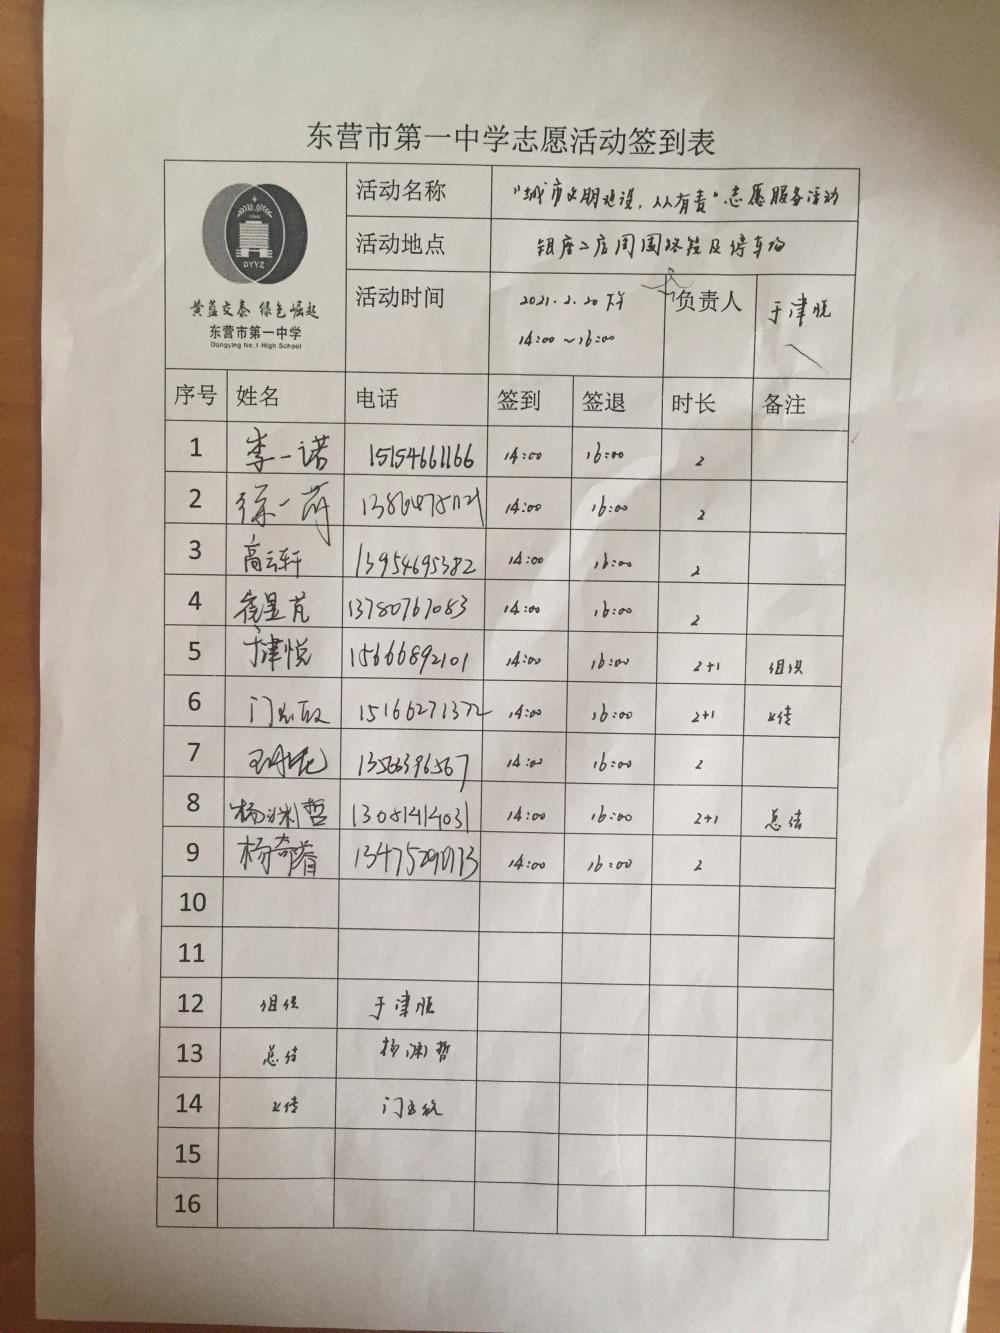 东营市第一中学志愿活动签到表
1946
DYYZ
黄蓝交泰 绿色崛起
东营市第一中学
Dongying No.1 High School
活动名称 "城市文明建设,人人有责"志愿服务活动
活动地点 银座二店周围环境及停车场
活动时间 2021.2.20 下午
14:00~16:00
负责人 于津悦
序号 姓名 电话 签到 签退 时长 备注
1 李一诺 15154661166 14:00 16:00 2
2 徐一 14:00 16:00 2
3 高云轩 13954695382 14:00 16:00 2
4 13780767083 14:00 16:00 2
5 于津悦 15666892101 14:00 16:00 2+1 组织
6 门 15166271372 14:00 16:00 2+1 上传
7 13563396567 14:00 16:00 2
8 杨渊哲 13081414031 14:00 16:00 2+1 总结
9 杨奇 14:00 16:00 2
10
11
12 组织 于津悦
13 总结 杨渊哲
14 上传 门
15
16